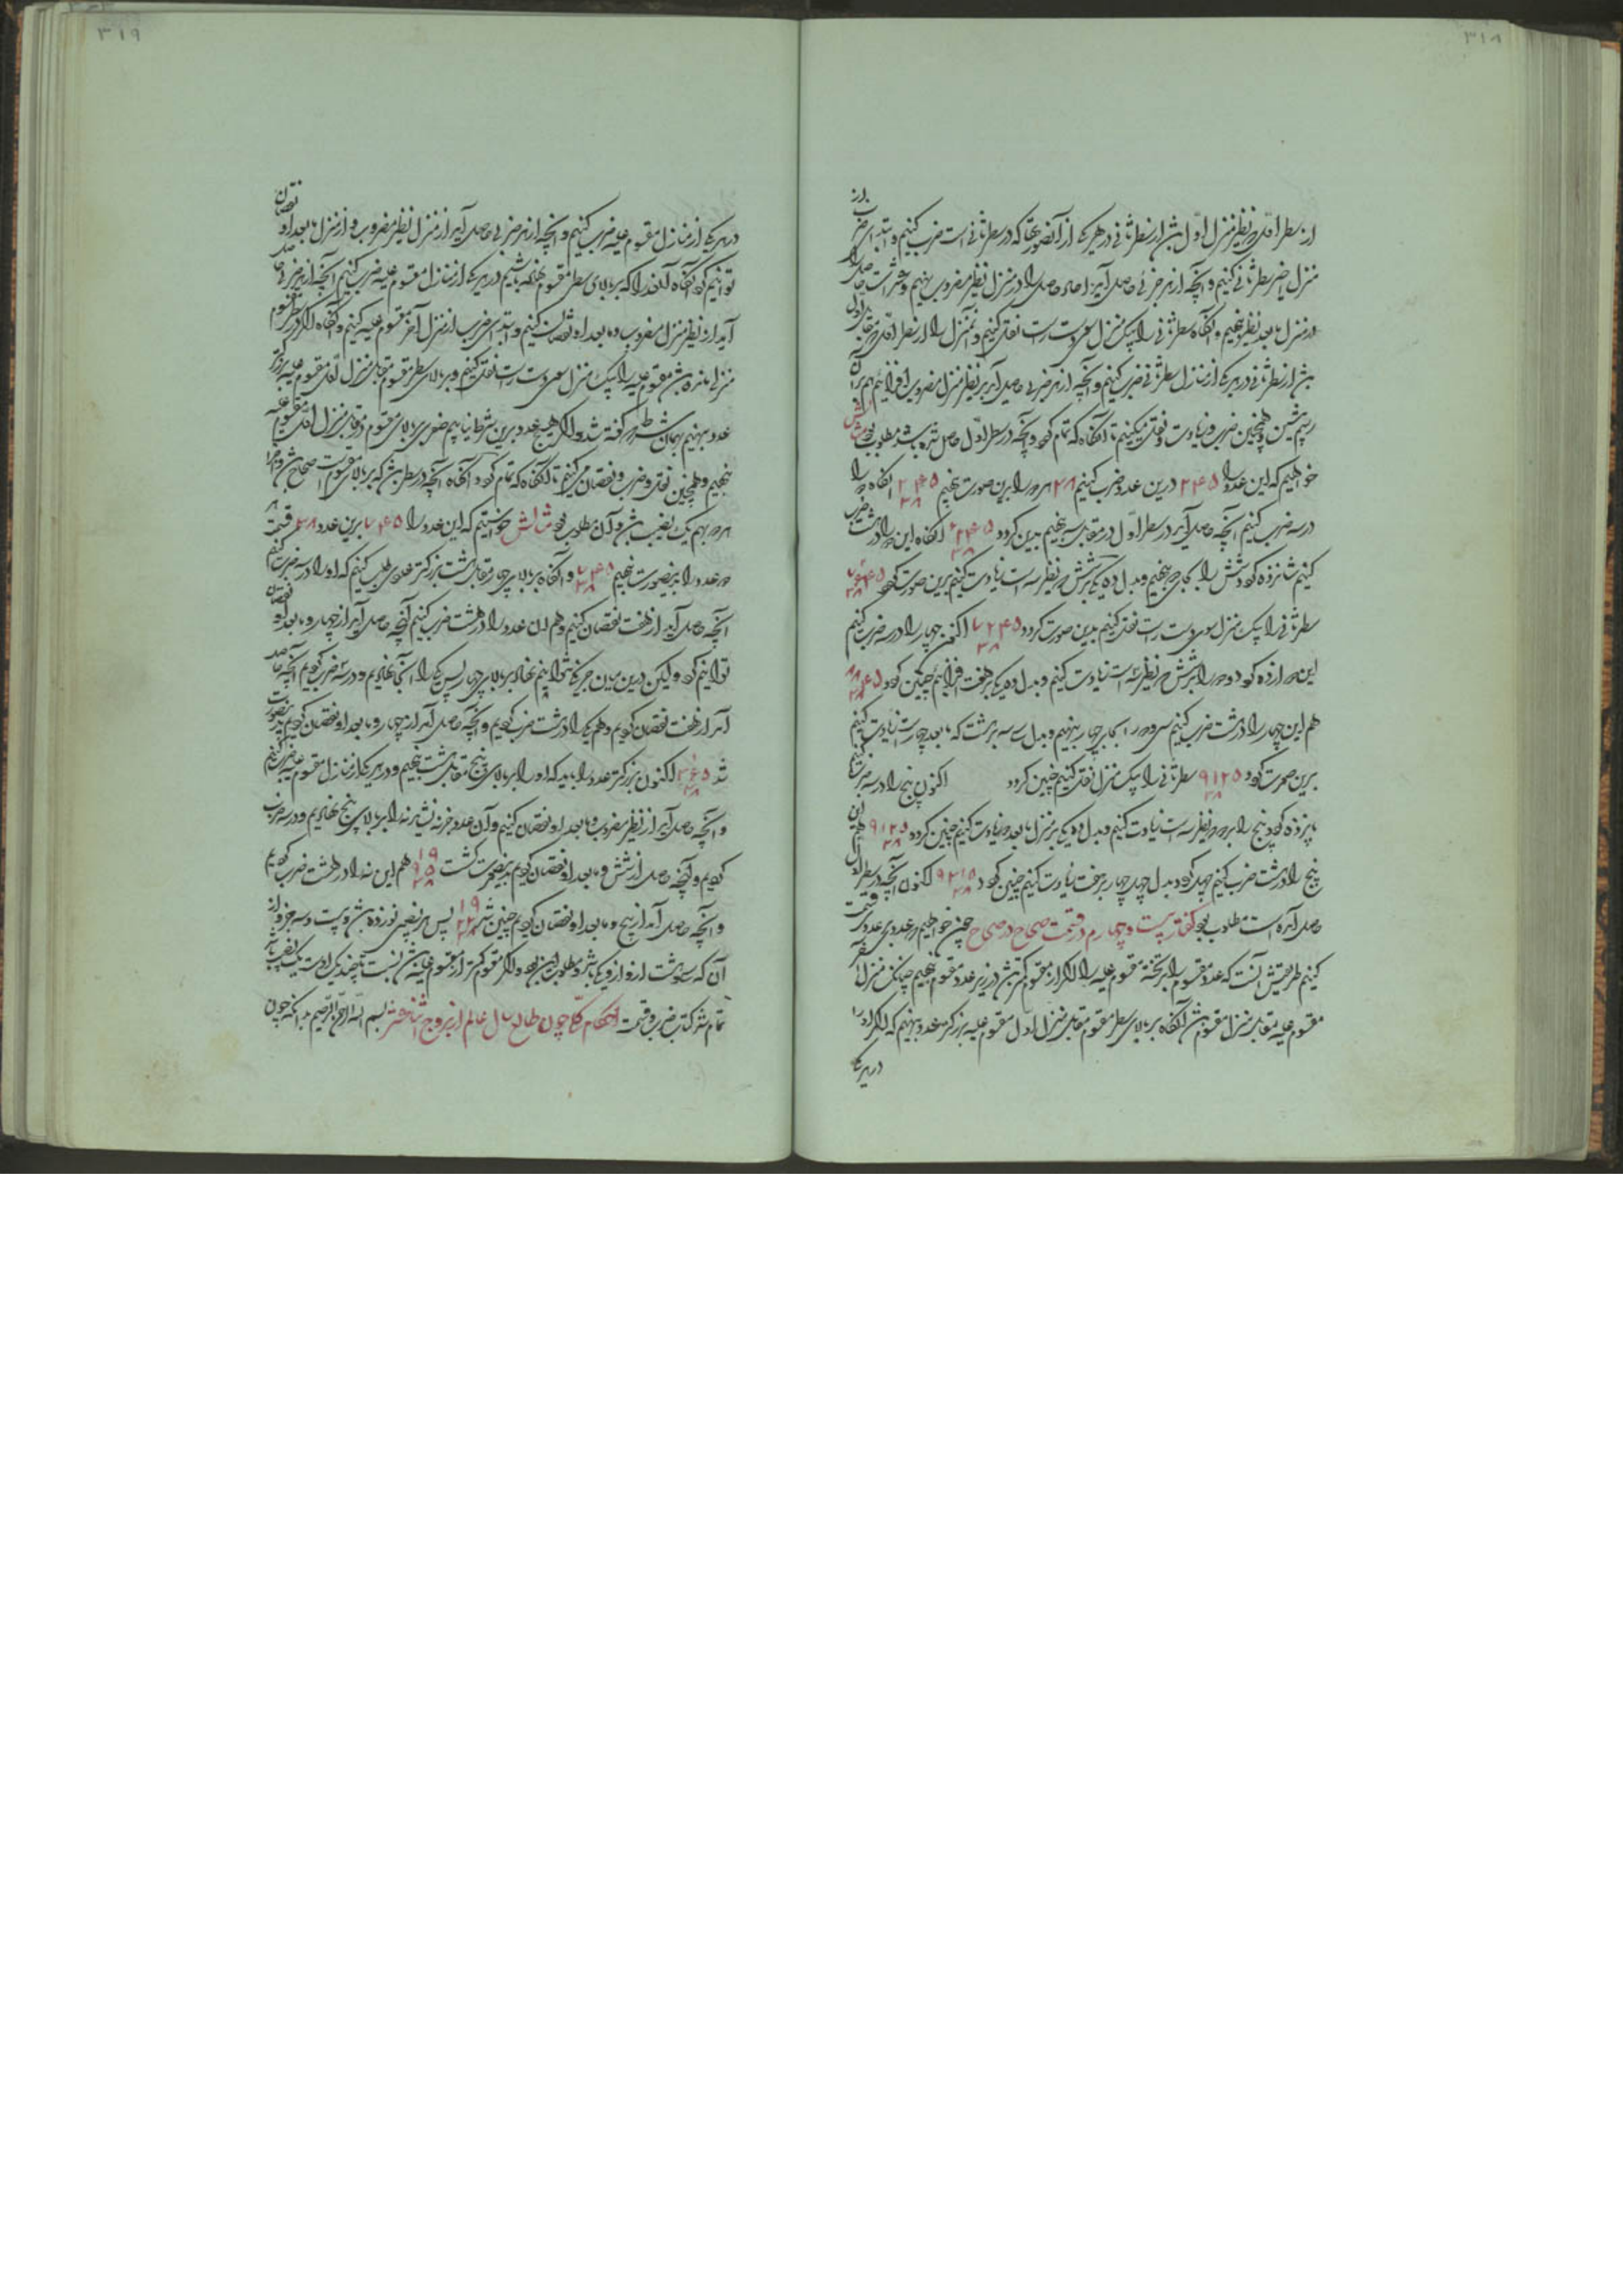 ۳۱۸
از سطر اول نظیر منزل اول بش از سطر ثانی در هر یکی از آن صورتها که در سطر ثانی است ضرب کنیم و ابتداء ضرب از
منزل اخیر سطر ثانی کنیم و آنچه از هر ضربی حاصل آید احاد حاصل را در منزل نظیر مضروب نهیم و عشرات حاصل را
در منزل بعد نظیر نهیم و آنگاه سطر ثانی را یک منزل سوی دست راست نقل کنیم و آن منزل را از سطر اول
از سطر ثانی در هر یکی از منازل سطر ثانی ضرب کنیم و آنچه از هر ضربی حاصل آید بر نظیر منزل مضروب افزائیم هم بر آن
رسم پیشین و همچنین ضرب و زیادت و نقل میکنیم تا آنگاه که تمام گردد و آنچه در سطر اول حاصل شده باشد مطلوب بود مثالش
خواهیم که این عدد را ۲۴۵ درین عدد ضرب کنیم ۳۸ هر دو را برین صورت نهیم ۲۴۵ ۳۸ آنگاه دو را
در سه ضرب کنیم آنچه حاصل آید در سطر اول در مقابل سه نهیم بدین گردد ۶۲۴۵ ۳۸ آنگاه این دو را در هشت ضرب
کنیم شانزده گردد شش را بجای دو نهیم و بدل ده یکی بر شش که نظیر سه است زیادت کنیم برین صورت گردد ۷۶۴۵ ۳۸
سطر ثانی را یک منزل سوی دست راست نقل کنیم بدین صورت گردد ۷۶۴۵ ۳۸ اکنون چهار را در سه ضرب کنیم
این دوازده گردد دو را بر شش که نظیر سه است زیادت کنیم و بدل ده یکی بر هفت افزائیم چنین گردد ۸۸۴۵ ۳۸
هم این چهار را در هشت ضرب کنیم سی و دو را بجای چهار بنهیم و بدل سی سه بر هشت که بعد چهار است زیادت کنیم
برین صورت گردد ۹۱۲۵ ۳۸ سطر ثانی را یک منزل نقل کنیم چنین گردد اکنون پنج را در سه ضرب کنیم تا
پانزده گردد پنج را بر دو که نظیر سه است زیادت کنیم و بدل ده یکی بر منزل بعد دو زیادت کنیم چنین گردد ۹۲۷۵ ۳۸ هم این
پنج را در هشت ضرب کنیم چهل گردد بدل چهل چهار بر هفت زیادت کنیم چنین گردد ۹۳۱۰ ۳۸ اکنون آنچه در سطر اول
حاصل آمده است مطلوب بود گفتار بیست و چهارم در قسمت صحاح در صحاح چون خواهیم که عددی بر عددی قسمت
کنیم طریقش آنست که عدد مقسوم را بر تخته مقسوم علیه را اگر از مقسوم کمتر بش در زیر عدد مقسوم نهیم چنانک منزل آخر
مقسوم علیه مقابل منزل مقسوم بش آنگاه بر بالای سطر مقسوم مقابل منزل اول مقسوم علیه بزرگتر عدد بنهیم که اگر او را
در هر یکی
۳۱۹
در هر یکی از منازل مقسوم علیه ضرب کنیم و آنچه از هر ضربی حاصل آید از منزل نظیر مضروب و از منزل بعد او نقصان
توانیم کرد آنگاه آن عدد را که بر بالای سطر مقسوم نهاده باشیم در هر یکی از منازل مقسوم علیه ضرب کنیم آنچه از هر ضربی حاصل
آید از نظیر منزل مضروب و بعد او نقصان کنیم و ابتداء ضرب از منزل آخر مقسوم علیه کنیم و آنگاه اگر در سطر مقسوم
منزلی مانده بش مقسوم علیه را یک منزل سوی دست راست نقل کنیم و بر بالای سطر مقسوم مقابل منزل اول مقسوم علیه بزرگتر
عدد بنهیم بهمان شرط که گفته شد و اگر هیچ عدد برین شرط نیابیم صفری بر بالای مقسوم در مقابل منزل اول مقسوم علیه
نهیم و همچنین نقل و ضرب و نقصان می‌کنیم تا آنگاه که تمام گردد آنگاه آنچه در سطر بش که بر بالای مقسوم است صحاح بش و اجزا
هر دو بهم یک نصیب بش و آن مطلوب بود مثالش خواستیم که این عدد را ۷۴۵ برین عدد ۳۸ قسمت
دو عدد را برین صورت نهیم ۷۴۵ ۳۸ و آنگاه بر بالای چهار مقابل هشت بزرگتر عددی طلب کنیم که او را در سه ضرب کنیم
آنچه حاصل آید از هفت نقصان کنیم و هم آن عدد را در هشت ضرب کنیم آنچه حاصل آید از چهار و بعد او نقصان
توانیم کرد ولیکن درین میان جز یکی نتوانیم نهاد بر بالای چهار پس یکی را آنجا نهادیم و در سه ضرب کردیم آنچه حاصل
آمد از هفت نقصان کردیم و هم یکی را در هشت ضرب کردیم و آنچه حاصل آمد از چهار و بعد او نقصان کردیم بدین صورت
شد ۳۶۵ ۳۸ اکنون بزرگتر عدد را باید که او را بر بالای پنج مقابل هشت نهیم و در هر یکی از منازل مقسوم علیه ضرب کنیم
و آنچه حاصل آید از نظیر مضروب و بعد او نقصان کنیم و آن عدد جز نه نشد نه را بر بالای پنج نهادیم و در سه ضرب
کردیم و آنچه حاصل از شش و بعد او نقصان کردیم بدین صورت گشت ۱۹ ۹۵ ۳۸ هم این نه را در هشت ضرب کردیم
و آنچه حاصل آمد از پنج و بعد او نقصان کردیم چنین شد ۱۹ ۲۳ ۳۸ پس هر نصیبی نوزده بش و بیست و سه جزو از
آن که سی و هشت ازو یکی باشد و مطلوب این بود و اگر مقسوم کمتر از مقسوم علیه بش نسبت
تمام شد کتاب ضرب و قسمت احکام کلی چون طالع سال عالم از بروج بسم الله الرحمن الرحیم بدانکه چون